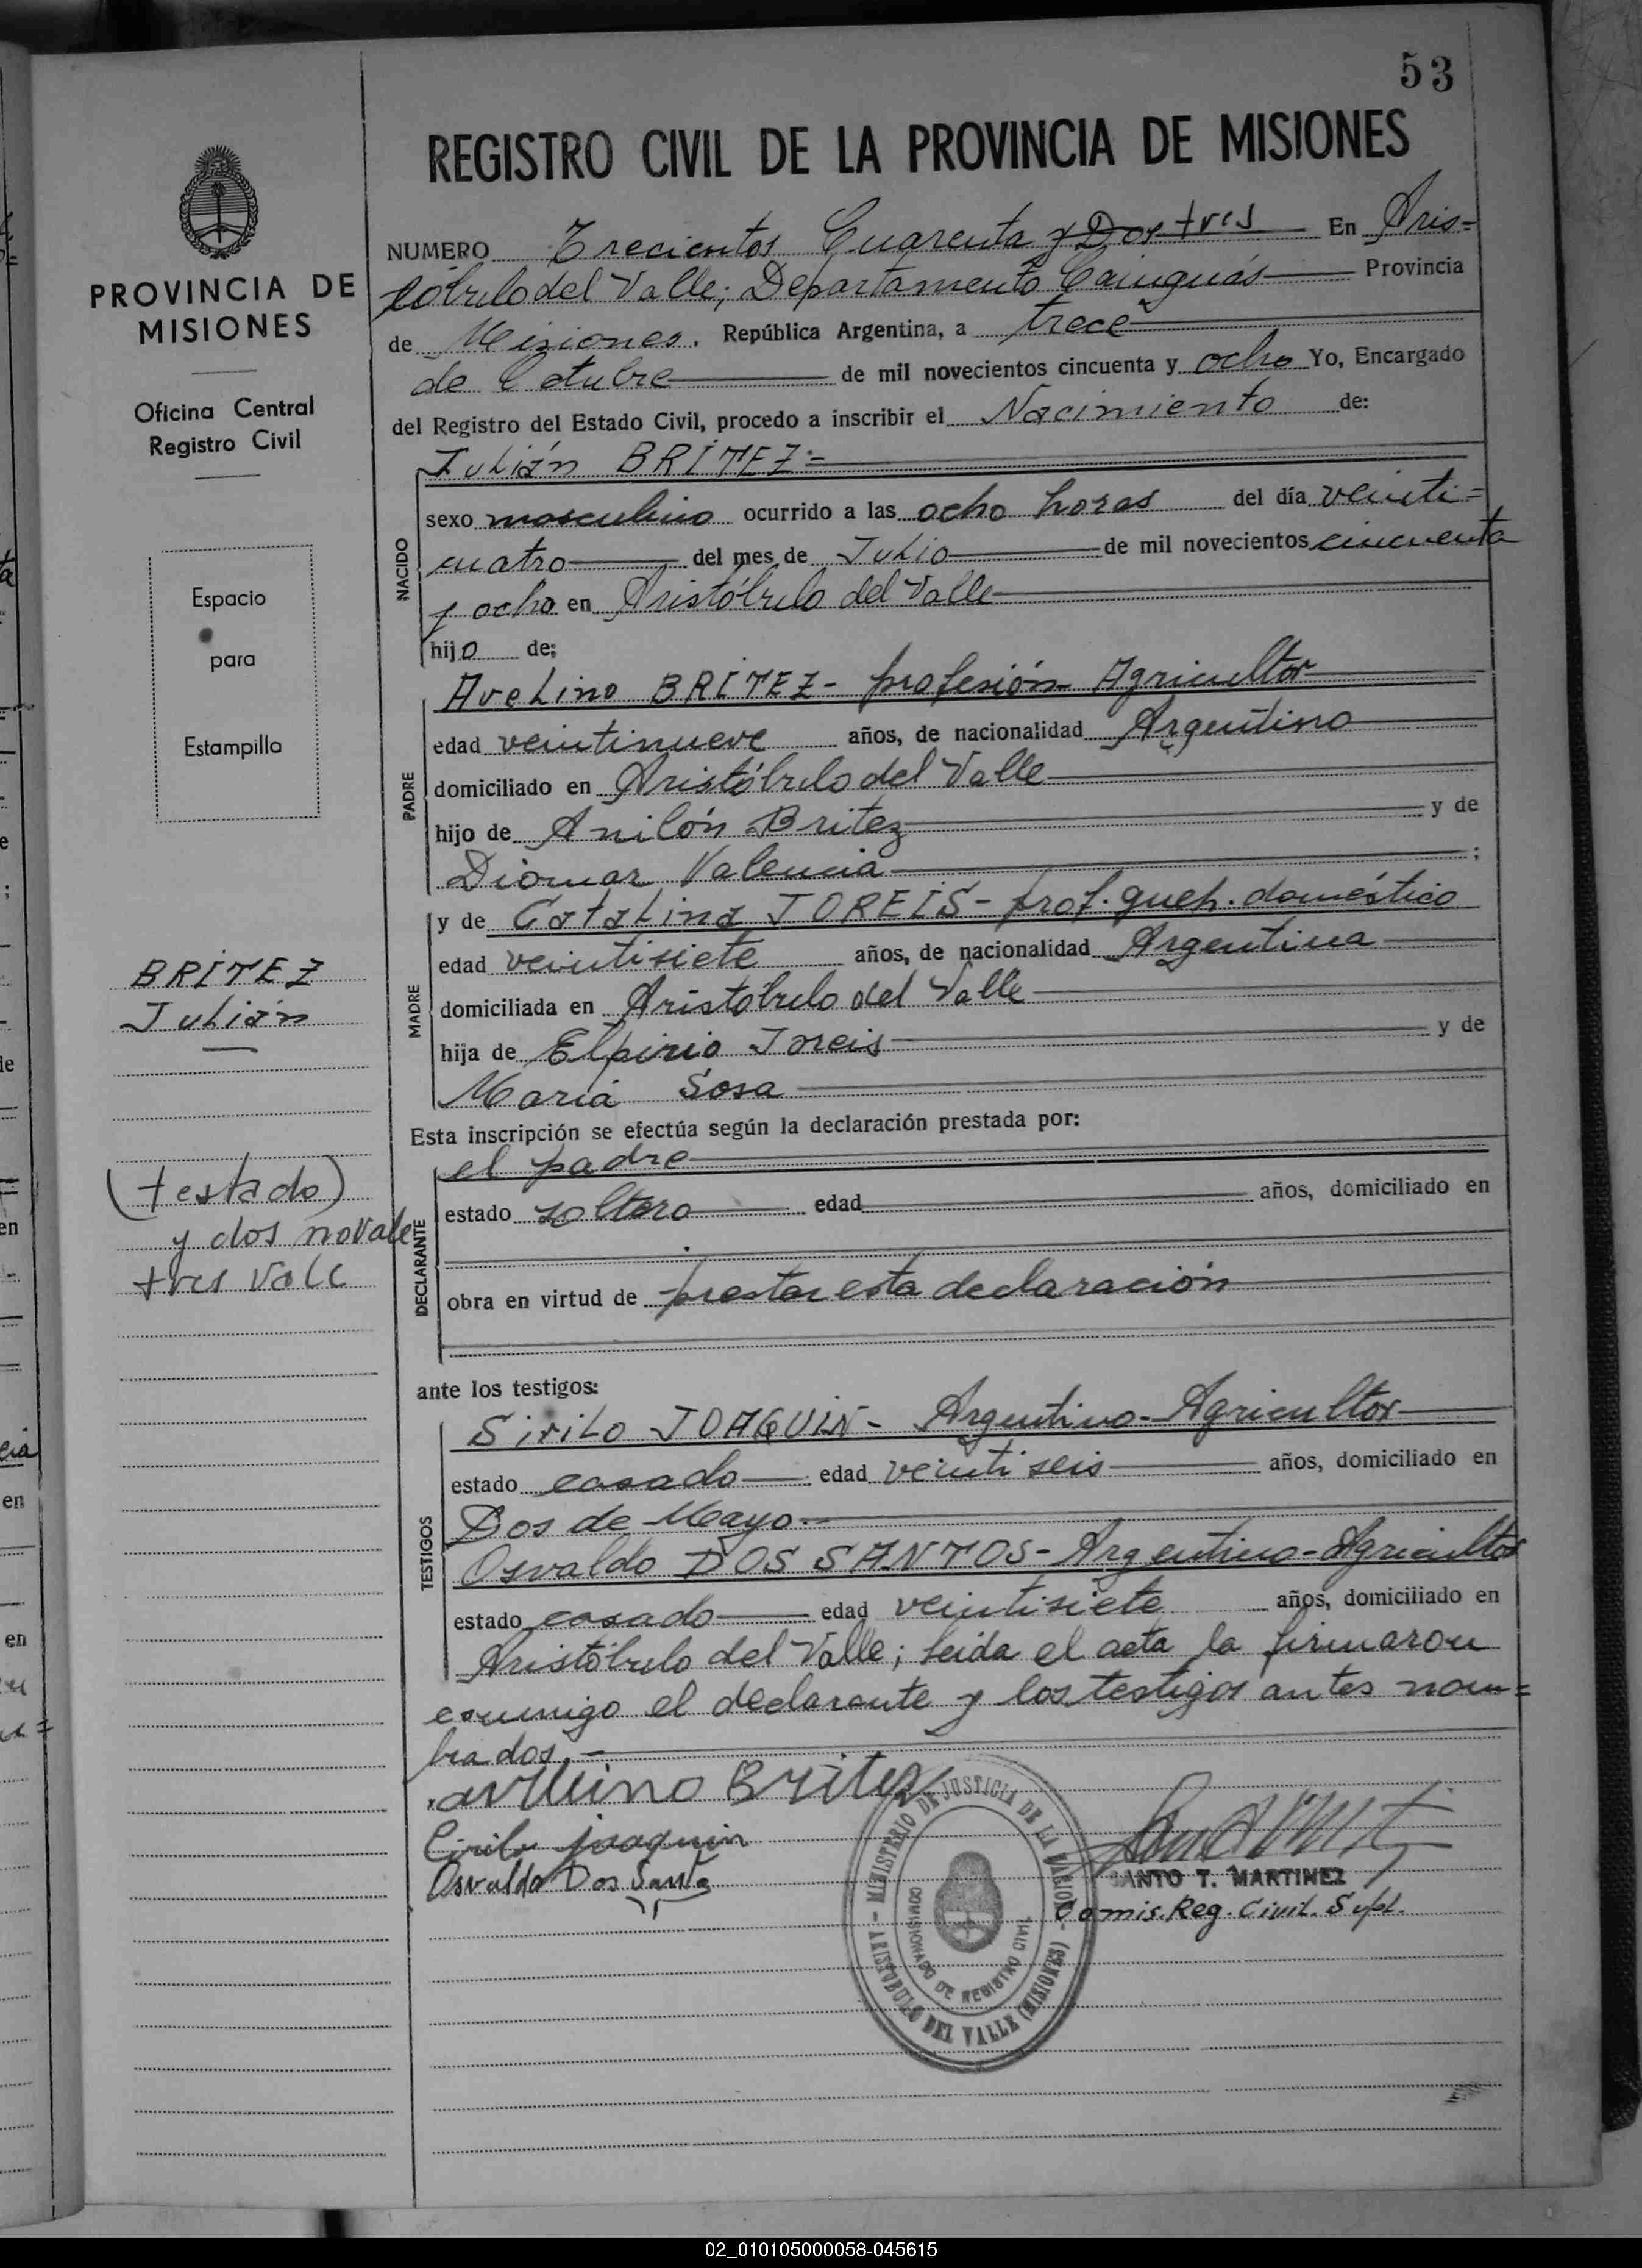 53
REGISTRO CIVIL DE LA PROVINCIA DE MISIONES
PROVINCIA DE
MISIONES
Oficina Central
Registro Civil
Espacio
para
Estampilla
BRÍTEZ
Julián
(testado)
y dos no vale
tres vale
NUMERO Trecientos Cuarenta y Dos tres En Aris=
tóbulo del Valle; Departamento Cainguás Provincia
de Misiones. República Argentina, a trece
de Octubre de mil novecientos cincuenta y ocho Yo, Encargado
del Registro del Estado Civil, procedo a inscribir el Nacimiento de:
Julián BRÍTEZ=
NACIDO
sexo masculino ocurrido a las ocho horas del día veinti=
cuatro del mes de Julio de mil novecientos cincuenta
y ocho en Aristóbulo del Valle
hijo de;
PADRE
Avelino BRÍTEZ- profesión- Agricultor
edad veintinueve años, de nacionalidad Argentino
domiciliado en Aristóbulo del Valle
hijo de Anilón Britez y de
Diomar Valencia ;
MADRE
y de Catalina JOREIS- prof. queh. doméstico
edad veintisiete años, de nacionalidad Argentina
domiciliada en Aristóbulo del Valle
hija de Elpirio Joreis y de
María Sosa
Esta inscripción se efectúa según la declaración prestada por:
DECLARANTE
el padre
estado soltero edad años, domiciliado en
obra en virtud de prestar esta declaración
ante los testigos:
TESTIGOS
Sirilo JOAQUIN- Argentino- Agricultor
estado casado edad veinti seis años, domiciliado en
Dos de Mayo.-
Osvaldo DOS SANTOS- Argentino- Agricultor
estado casado edad veintisiete años, domiciliado en
Aristóbulo del Valle; leída el acta la firmaron
conmigo el declarante y los testigos antes nom=
brados.-
avelino Britez
Cirilo joaquin
Osvaldo Dos Santo
MINISTERIO DE JUSTICIA DE LA NACION
COMISIONADO DE REGISTRO CIVIL
ARISTOBULO DEL VALLE (MISIONES)
SANTO T. MARTINEZ
Comis. Reg. Civil. Supl.
02_010105000058-045615